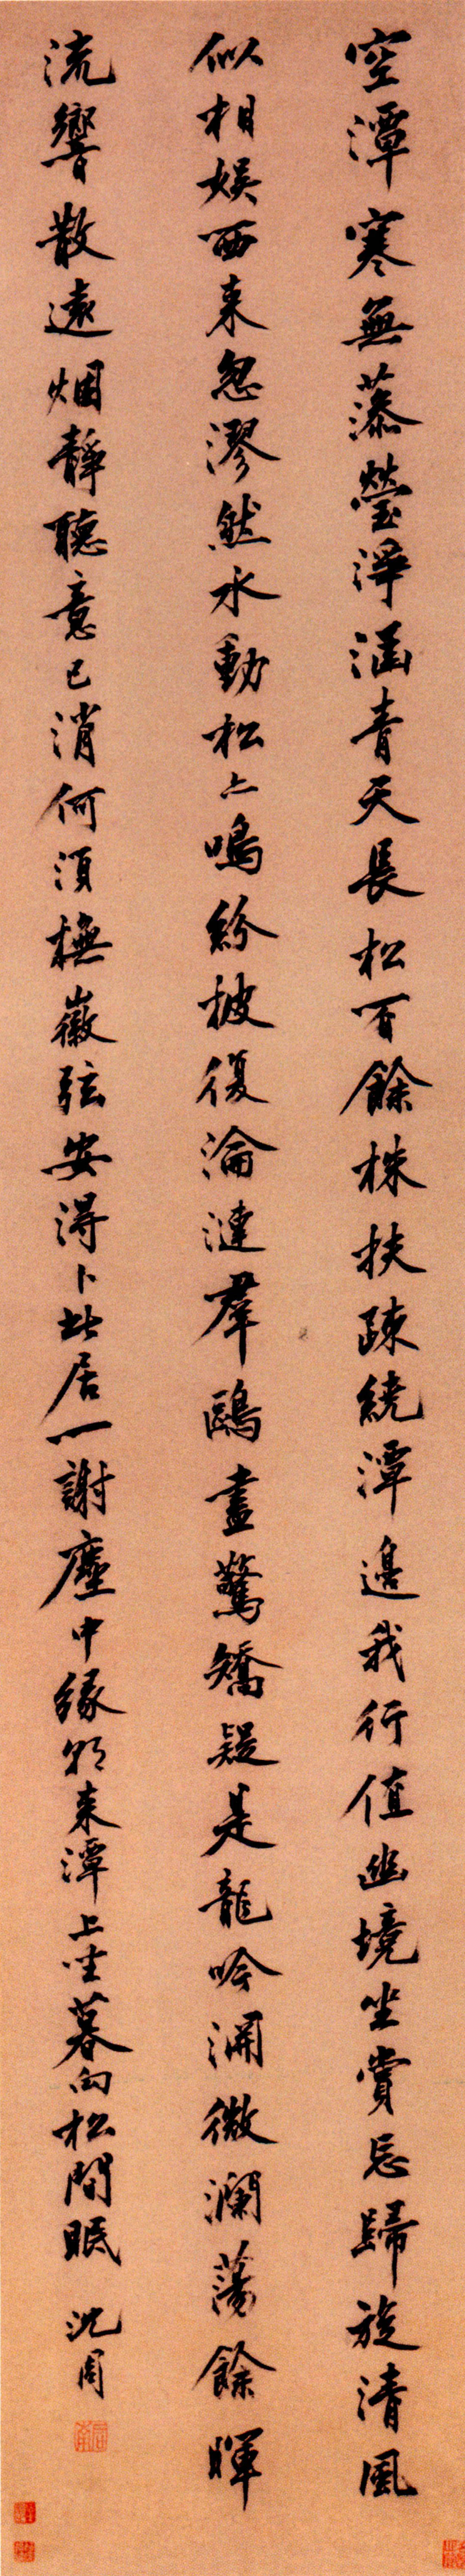 空潭寒無藻瑩淨涵青天長松百餘株扶疎繞潭邊我行值幽境坐賞忘歸旋清風
似相娛西来忽漻然水動松上鳴紛披復淪漣羣鷗盡驚矯疑是龍吟淵微瀾蕩餘暉
流響散遠烟靜聽意已消何須撫徽弦安得卜此居一謝塵中緣朝来潭上坐暮向松間眠 沈周